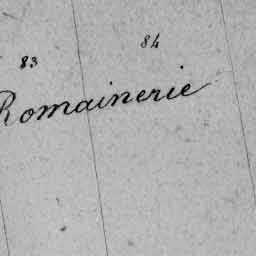 84
83
Romainerie